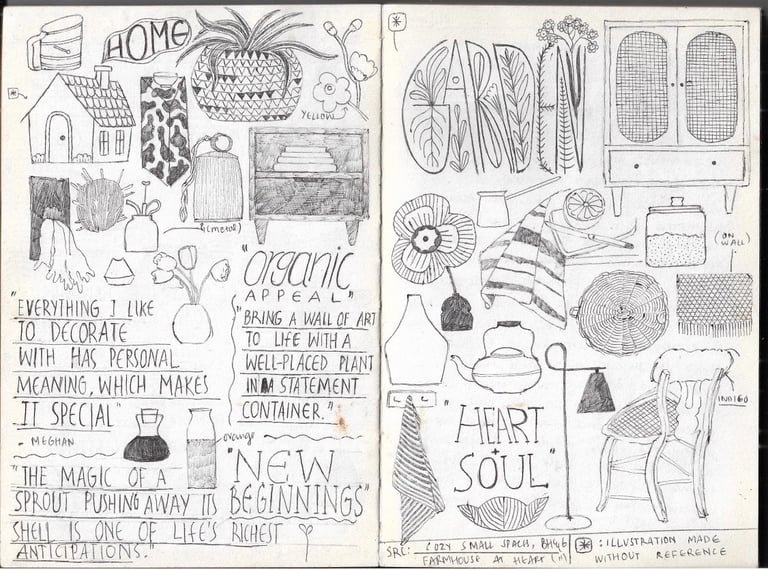 HOME
YELLOW
(metal)
"organic
APPEAL"
"EVERYTHING I LIKE
TO DECORATE
WITH HAS PERSONAL
MEANING, WHICH MAKES
IT SPECIAL"
- MEGHAN
"BRING A WALL OF ART
TO LIFE WITH A
WELL-PLACED PLANT
IN A STATEMENT
CONTAINER."
orange
"THE MAGIC OF A
SPROUT PUSHING AWAY ITS
SHELL IS ONE OF LIFE'S RICHEST
ANTICIPATIONS."
"NEW
BEGINNINGS"
GARDEN
(ON
WALL)
INDIGO
"HEART
+
SOUL"
SRC: COZY SMALL SPACES, BH&G
FARMHOUSE AT HEART
* : ILLUSTRATION MADE
WITHOUT REFERENCE